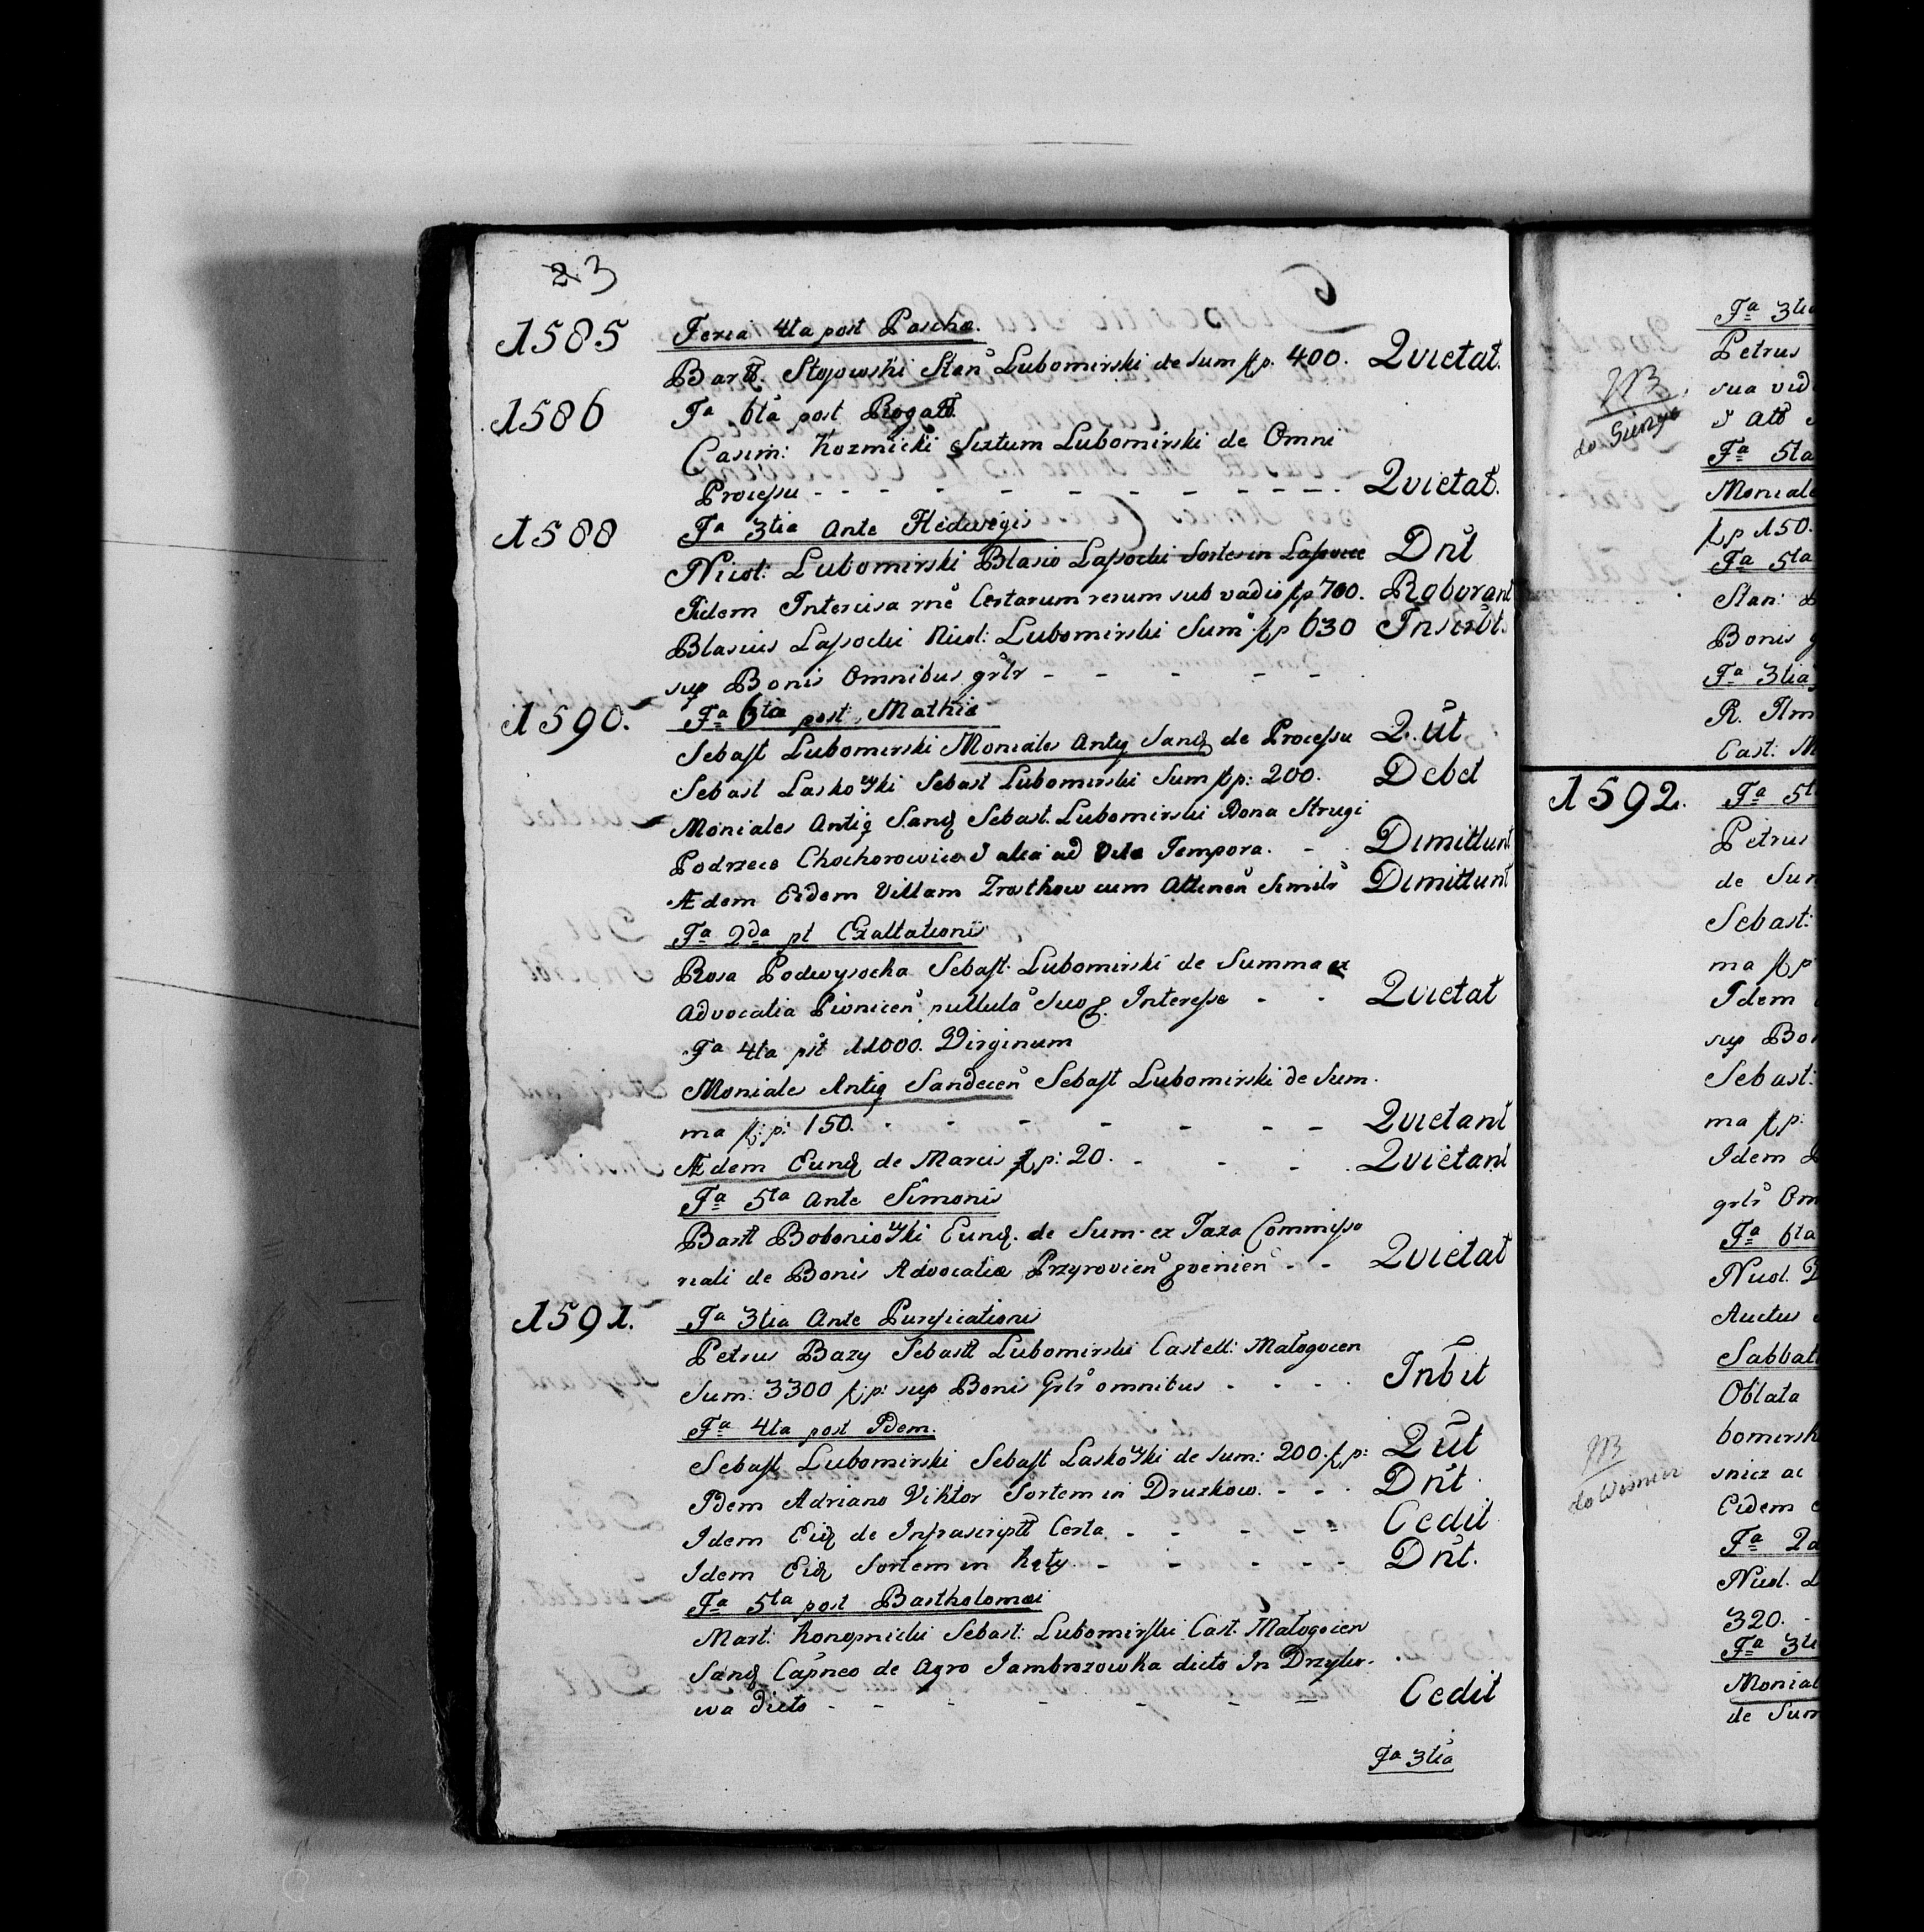 2. 3
1585 Feria 4ta post Paschæ.
Bartt. Stojowski Stan Lubomirski de sum fl p. 400. Qvietat.
1586 Fa 6ta post Rogatt.
Casim: Kozmicki Sixtum Lubomirski de Omni
Processu - - - - - - - - - - Qvietat.
1588 Fa 3tia Ante Hedwigis
Nicol: Lubomirski Blasio Lassocki Sortes in Lassocice Dnt
Iidem Intercisa rne Certarum rerum sub vadio fl p 700. Roborant
Blasius Lassocki Nicol: Lubomirski Sum fl p 630 Inscrbt.
sup Bonis Omnibus grlr - - - - -
1590. Fa 6ta post Mathiæ
Sebast Lubomirski Moniales Antiq Sand de Processu Q.ut
Sebast Laskowski Sebast Lubomirski Sum fl p: 200. Debet
Moniales Antiq Sand Sebast. Lubomirski Bona Strugi
Podrzece Chochorowice & alia ad Tempora. - - Dimittunt
Ædem Eidem Villam Zrostkow cum Attinen Similr Dimittunt
Fa 2da pt Exaltationis
Rosa Podwysocka Sebast: Lubomirski de Summa ex
Advocatia Pionicen, Suoq. Interesse - - Qvietat
Fa 4ta pst 11000. Virginum
Moniales Antiq Sandecen Sebast Lubomirski de Sum.
ma fl: p: 150. - - - - - - Qvietant
Ædem Eund de Marcis fl p: 20. - - - Qvietant
Fa 5ta Ante Simonis
Bartt Boboniowski Eund. de Sum. ex Taxa Commisso
riali de Bonis Advocatiæ Przyrovien - - Qvietat
1591. Fa 3tia Ante Purificationis
Petrus Bazy Sebastt Lubomirski Castell: Malogocen
Sum: 3300 fl p: sup Bonis Grlr omnibus - - - - Inbit
Fa 4ta post Idem.
Sebast Lubomirski Sebast Laskowski de Sum: 200. fl p: Qut
Idem Adriano Viktor Sortem in Druzkow. - - - Dnt.
Idem Eid de Infrascriptt Certa. - - - - - Cedit
Idem Eid Sortem in Kąty. - - - - - Dnt.
Fa 5ta post Bartholomæi
Mart: Konopnicki Sebast: Lubomirski Cast. Malogocen
Sand Capneo de Agro Jambrozowka dicto In
wa dicto - - - - - - - Cedit
Fa 3tia
Fa 3tia
Petrus
sua vid
NB
do Gungo
Fa 5ta
Moniale
fl p 150.
Fa 5ta
Stan:
Bonis g
Fa 3tia
R.
Cast: M
1592. Fa 5t
Petrus
de Sum
Sebast:
ma fl p
Idem
sup Bon
Sebast:
ma fl p:
Idem
grlr Om
Fa 6ta
Nicol.
Auctus
Sabbat
Oblata
bomirsk
NB
do Wisnicz
snicz ac
Eidem
Fa 2d
Nicol. L
320. -
Fa 3ti
Monial
de Sum